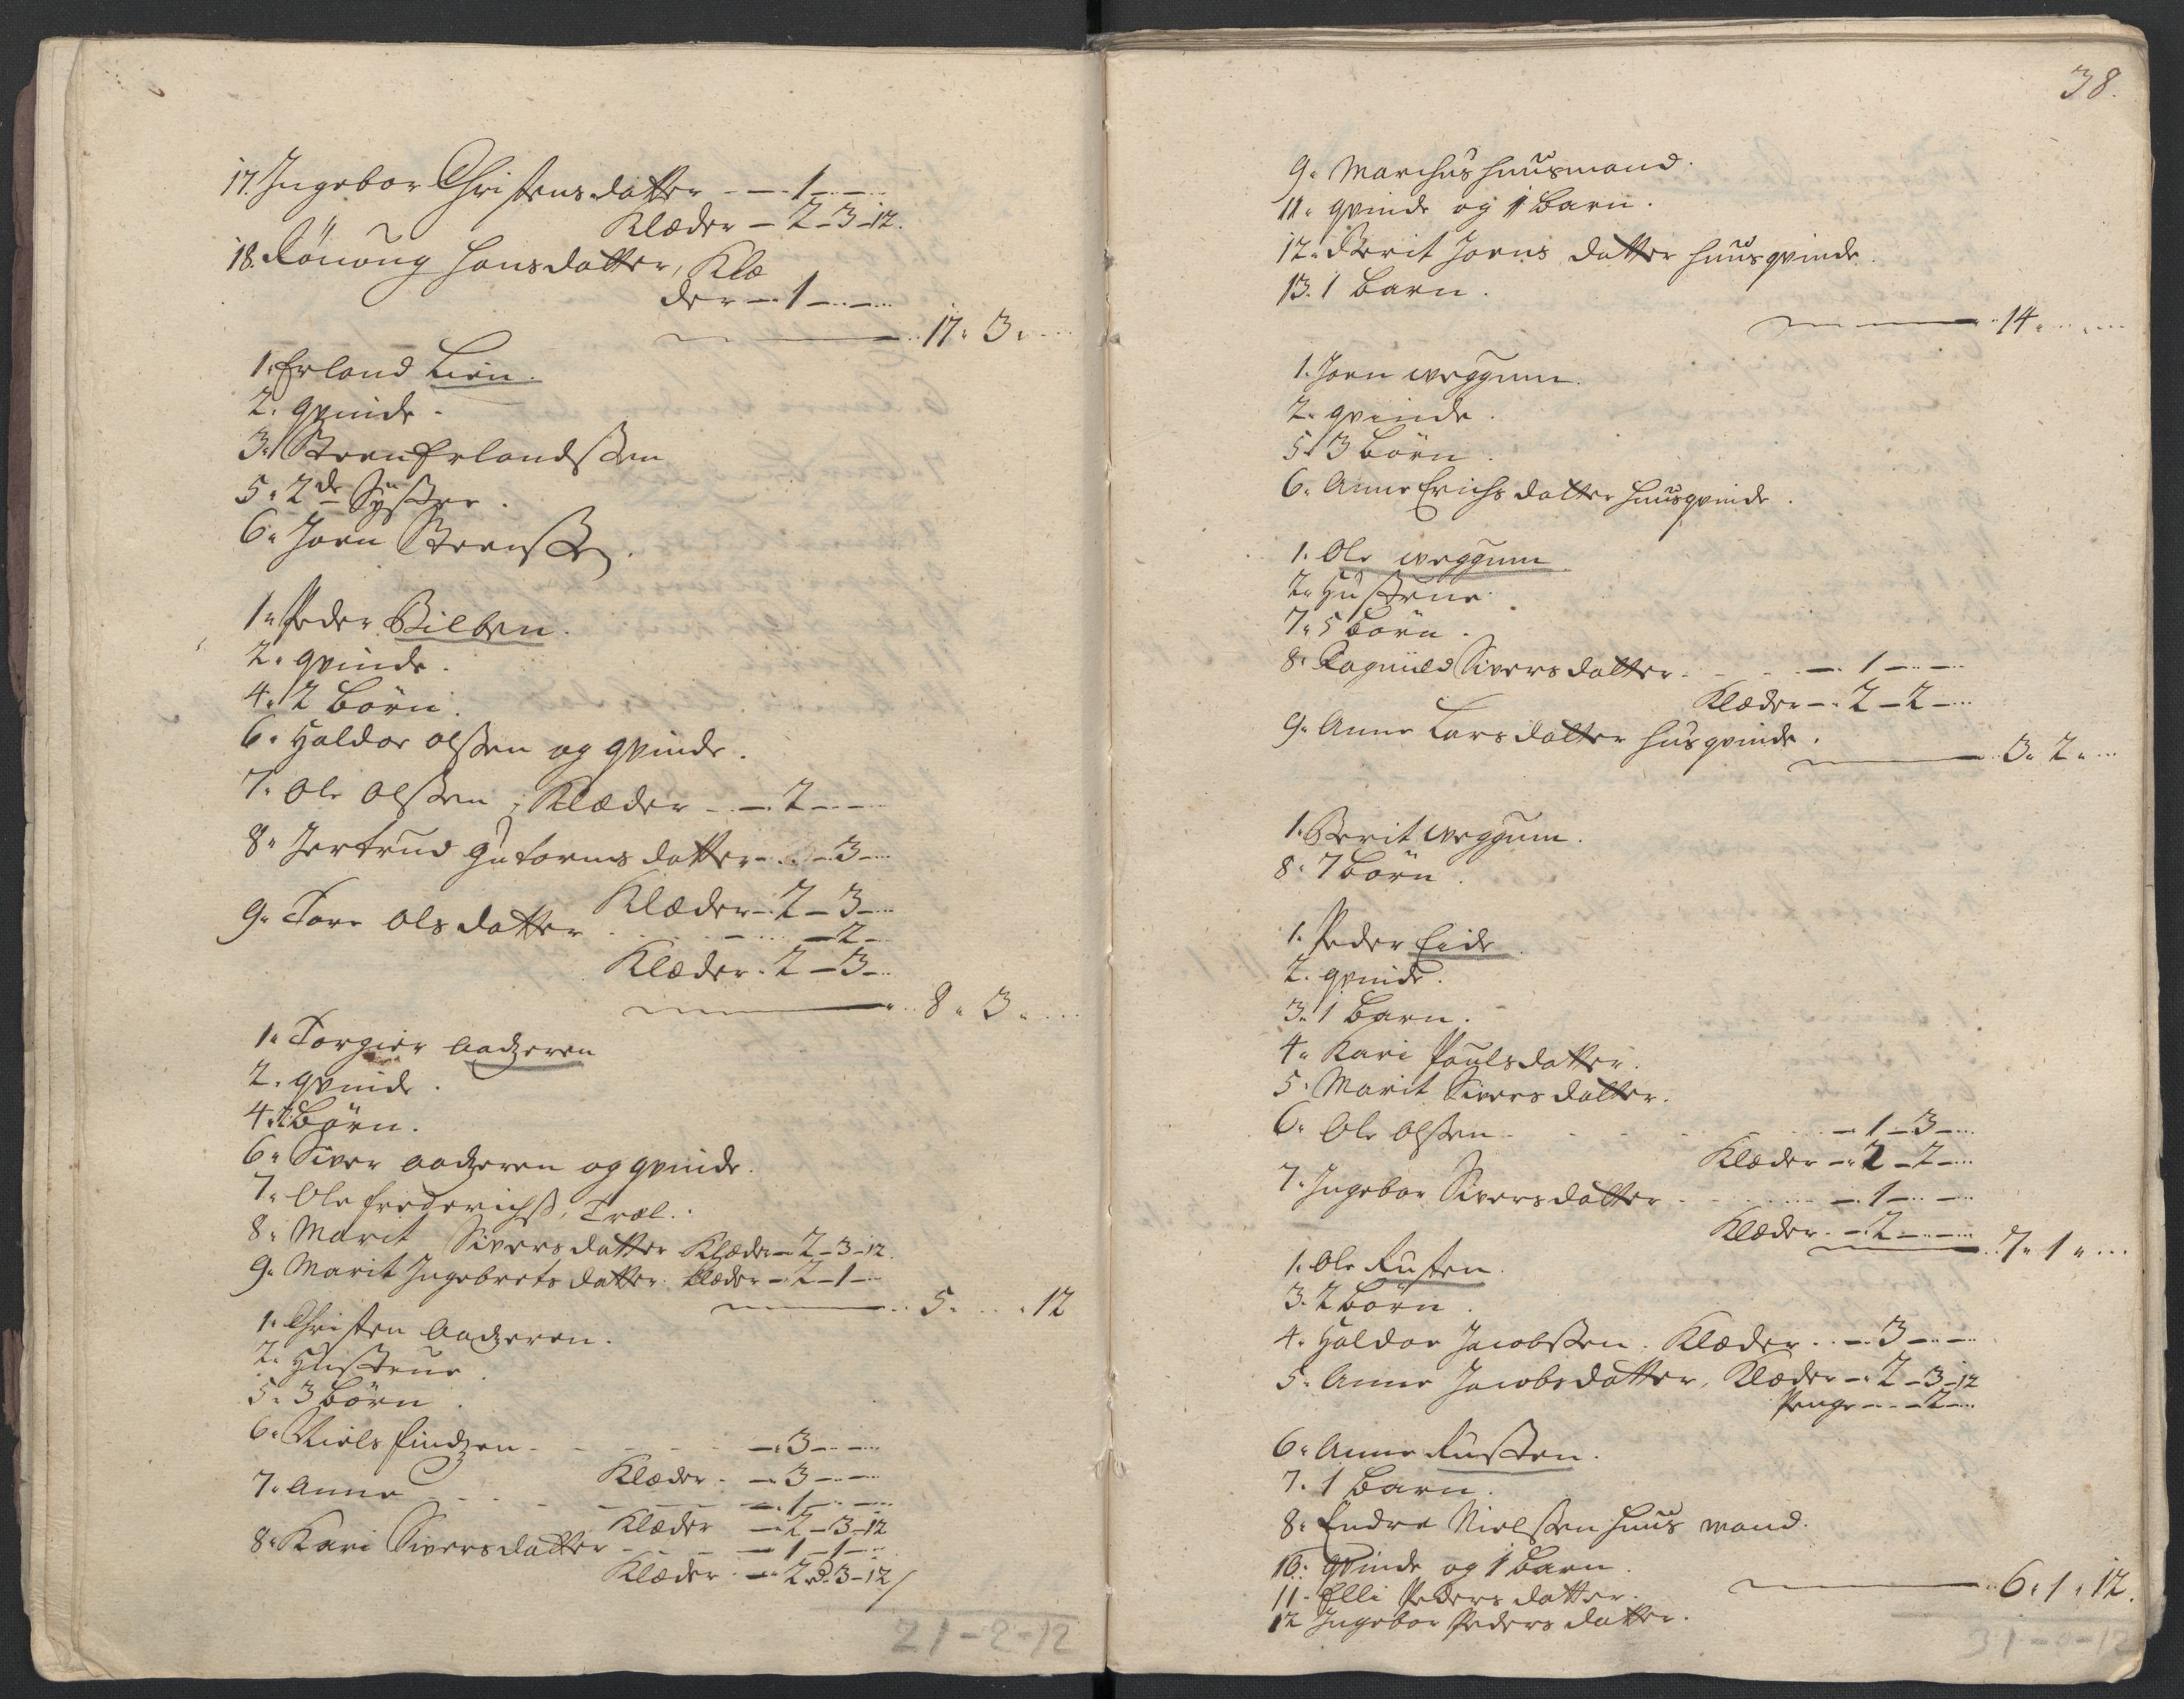 17. Ingebor Christensdatter - - 1 - -
Klæder - 2 - 3 - 12.
18. Rönoug Hansdatter, Klæ
der - 1 - -
17. 3.
1. Erland Lien.
2. qvinde.
3. Steen Erlandssen
5. 2de Syster.
6. Joen Steenss
1. Peder Bilben.
2. qvinde.
4. 2 Börn.
6. Haldor olssen og qvinde.
7. Ole Olssen, Klæder - - 2 - -
8. Jertrud Gutormsdatter - - 3 -
Klæder - 2 - 3 -
9. Tore olsdatter - - 2 -
Klæder - 2 - 3 -
8. 3.
1. Torgier Aadzeren
2. qvinde.
4. 2 Börn.
6. Siver aadzeren og qvinde.
7. Ole frederichss, Træl.
8. Marit Siversdatter Klæder - 2 - 3 - 12.
9. Marit Ingebretsdatter. Klæder - 2 - 1 -
5. . 12
1. Christen Aadzeren.
2. Hustrue
5. 3 Börn.
6. Niels findzen - - 3 - -
Klæder - - 3 - -
7. Anne - - 1 - -
Klæder - 2 - 3 - 12
8. Kari Siversdatter - - 1 - 1 -
Klæder - 2 - 3 - 12
21 - 2 - 12
38.
9. Marchus huusmand.
11. qvinde og 1 Barn.
12. Berit Joens datter huusqvinde.
13. 1 Barn.
14.
1. Joen weggum.
2. qvinde.
5. 3 Börn.
6. Anne Erichsdatter huusqvinde.
1. Ole weggum.
2. Hustrue.
7. 5 Börn.
8. Ragnild Siversdatter - - 1 - -
Klæder - 2 - 2 -
9. Anne Larsdatter husqvinde.
3. 2.
1. Berit weggum.
8. 7 Börn.
1. Peder Eide.
2. qvinde.
3. 1 Barn.
4. Kari Poulsdatter.
5. Marit Siversdatter.
6. Ole Olssen - - 1 - 3 -
Klæder - 2 - 2 -
7. Ingebor Siversdatter - - 1 - -
Klæder - 2 - -
7. 1.
1. Ole Rusten.
3. 2 Börn.
4. Haldor Jacobssen. Klæder - - 3 - -
5. Anne Jacobsdatter, Klæder - 2 - 3 - 12
Penge - - 2 -
6. Anne Russten.
7. 1 Barn.
8. Endre Nielssen huusmand.
10. qvinde og 1 Barn.
11. Elli Pedersdatter.
6. 1. 12.
12 Ingebor Pedersdatter.
31 - 0 - 12